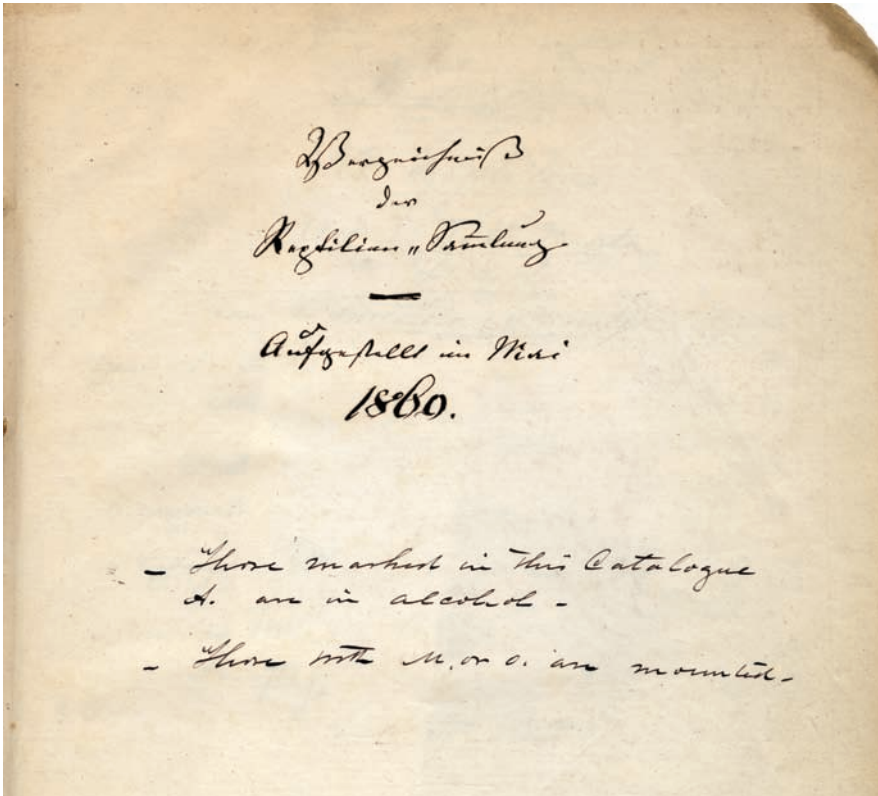 Verzeichniß
der
Reptilien„Sam̄lung
Aufgestellt im Mai
1860.
- Those marked in this Catalogue
A. are in alcohol -
- Those with M. or o. are mounted -